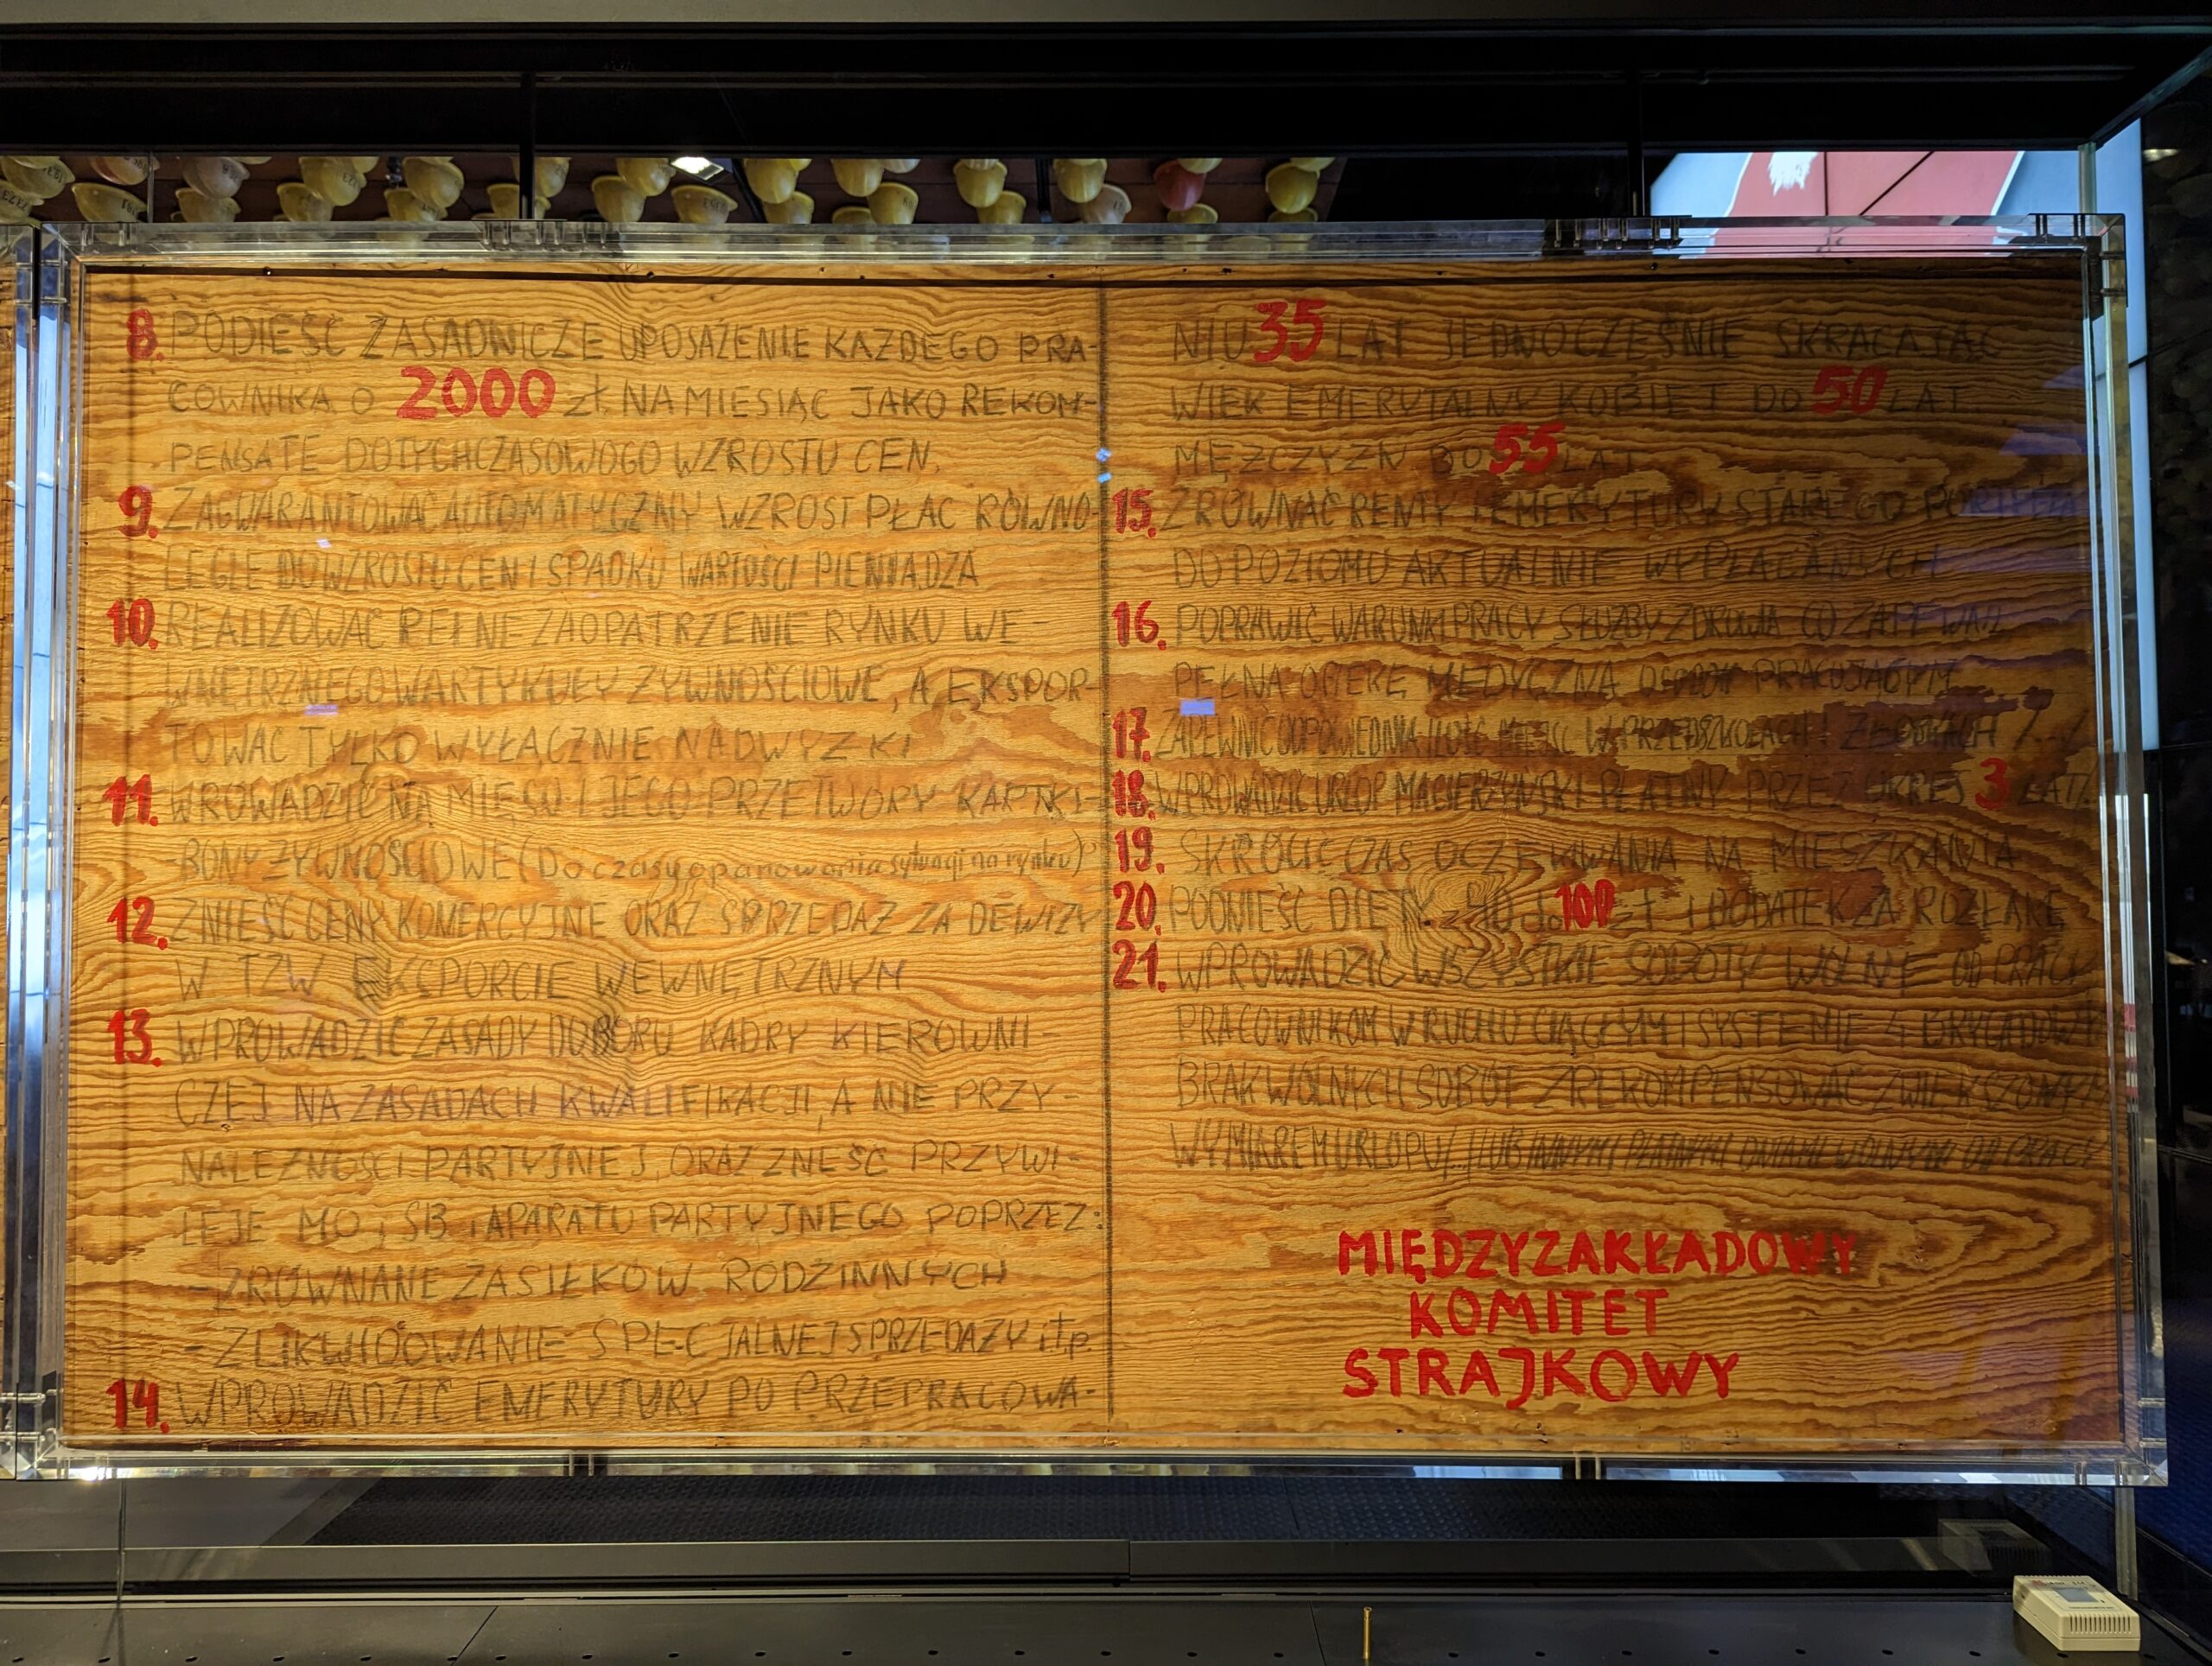 8. PODIEŚĆ ZASADNICZE UPOSAŻENIE KAŻDEGO PRA-
COWNIKA O 2000 zł. NA MIESIĄC JAKO REKOM-
PENSATE DOTYCHCZASOWOGO WZROSTU CEN.
9. ZAGWARANTOWAĆ AUTOMATYCZNY WZROST PŁAC RÓWNO-
LEGLE DO WZROSTU CEN I SPADKU WARTOŚCI PIENIĄDZA
10. REALIZOWAĆ PEŁNE ZAOPATRZENIE RYNKU WE-
WNĘTRZNEGO W ARTYKUŁY ŻYWNOŚCIOWE, A EKSPOR-
TOWAĆ TYLKO WYŁĄCZNIE NADWYŻKI
11. WROWADZIĆ NA MIĘSO I JEGO PRZETWORY KARTKI-
-BONY ŻYWNOŚCIOWE (Do czasu opanowania sytuacji na rynku)
12. ZNIEŚĆ CENY KOMERCYJNE ORAZ SPRZEDAŻ ZA DEWIZY
W TZW. EKSPORCIE WEWNĘTRZNYM
13. WPROWADZIĆ ZASADY DOBORU KADRY KIEROWNI-
CZEJ NA ZASADACH KWALIFIKACJI, A NIE PRZY-
NALEŻNOŚCI PARTYJNEJ, ORAZ ZNEŚĆ PRZYWI-
LEJE MO, SB i APARATU PARTYJNEGO POPRZEZ:
- ZRÓWNANE ZASIŁKÓW RODZINNYCH
- ZLIKWIDOWANIE SPECJALNEJ SPRZEDAŻY i.t.p.
14. WPROWADZIĆ EMERYTURY PO PRZEPRACOWA-
NIU 35 LAT JEDNOCZEŚNIE SKRACAJĄC
WIEK EMERYTALNY KOBIET DO 50 LAT.
MĘŻCZYZN DO 55 LAT
15. ZRÓWNAĆ RENTY I EMERYTURY STAREGO PORTFELA
DO POZIOMU AKTUALNIE WYPŁACANYCH
16. POPRAWIĆ WARUNKI PRACY SŁUŻBY ZDROWIA CO ZAPEWNI
PEŁNĄ OPIEKĘ MEDYCZNĄ OSOBOM PRACUJĄCYM
17. ZAPEWNIĆ ODPOWIEDNIĄ ILOŚĆ MIEJSC W PRZEDSZKOLACH I ŻŁOBKACH /.../
18. WPROWADZIĆ URLOP MACIERZYŃSKI PŁATNY PRZEZ OKRES 3 LAT/.
19. SKRÓCIĆ CZAS OCZEKIWANIA NA MIESZKANIA
20. PODNIEŚĆ DIETY z 40 do 100 zł i DODATEK ZA ROZŁĄKĘ
21. WPROWADZIĆ WSZYSTKIE SOBOTY WOLNE OD PRACY
PRACOWNIKOM W RUCHU CIĄGŁYM I SYSTEMIE 4 BRYGADOWYM
BRAK WOLNYCH SOBÓT ZREKOMPENSOWAĆ ZWIĘKSZONYM
WYMIAREM URLOPU /.../ LUB INNYMI PŁATNYMI DNIAMI WOLNYMI OD PRACY
MIĘDZYZAKŁADOWY
KOMITET
STRAJKOWY